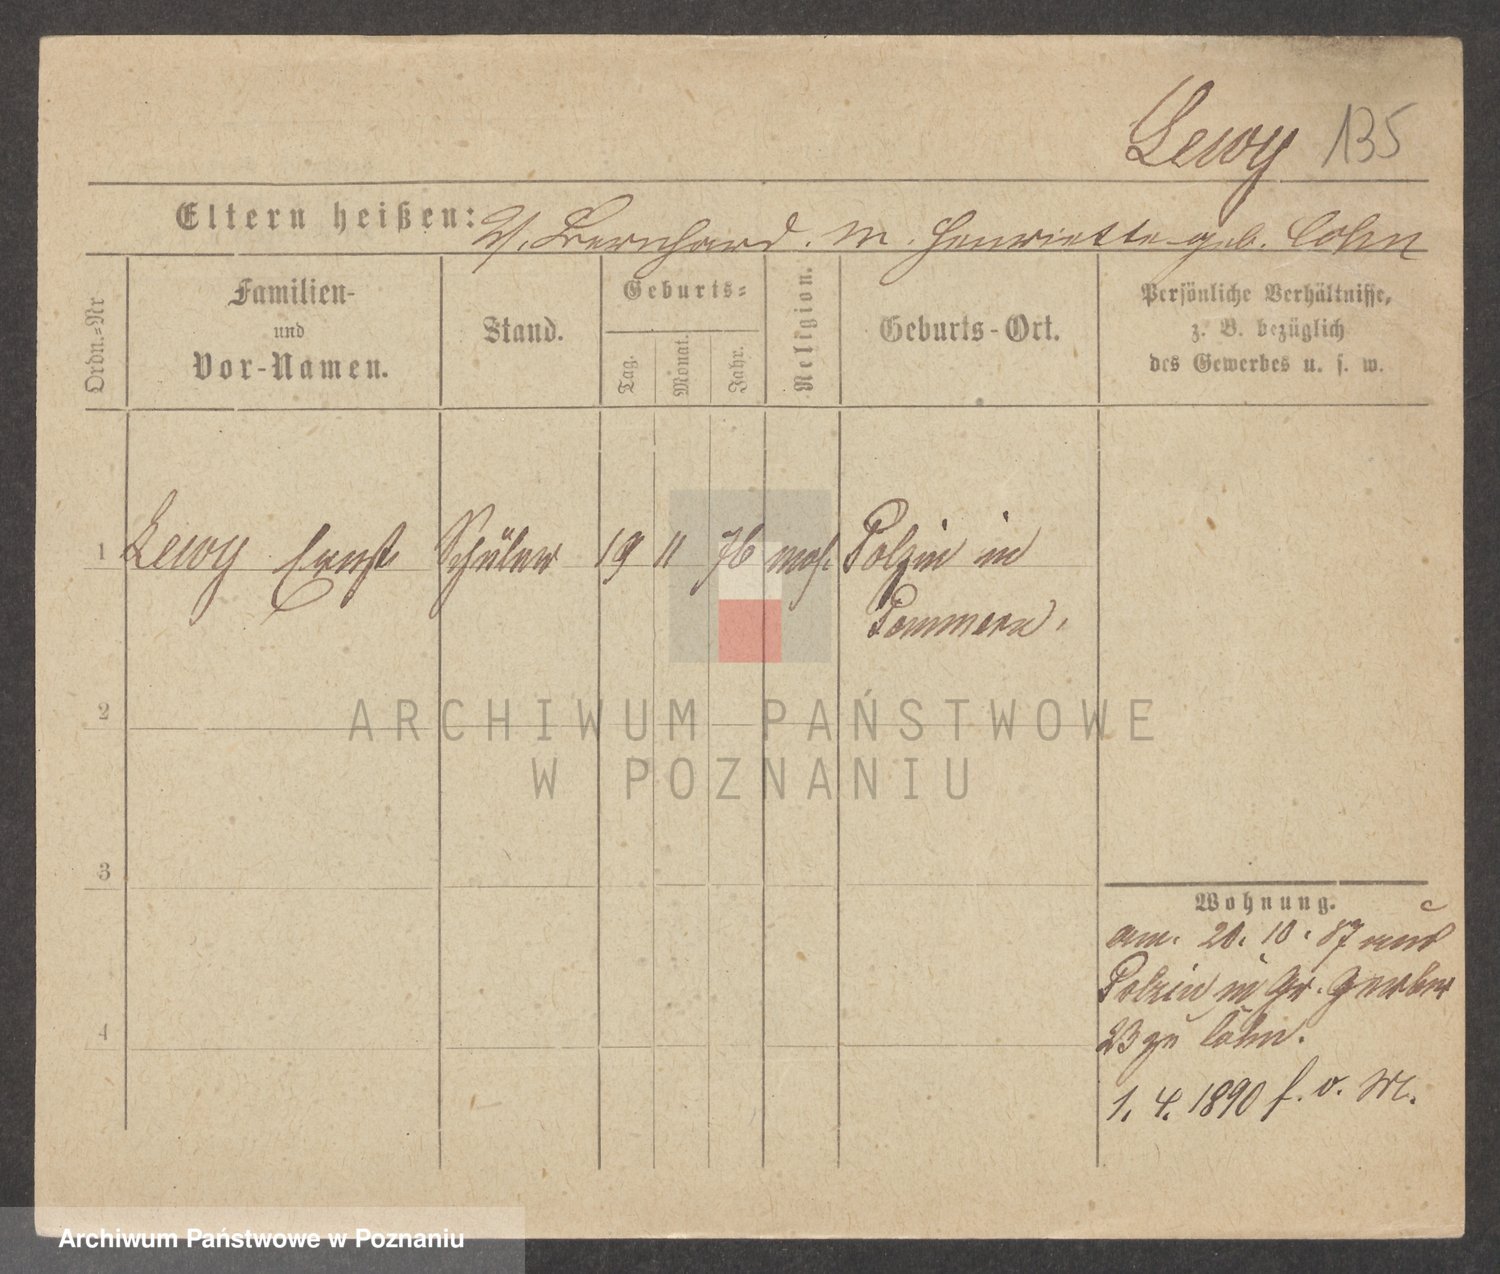 Lewy 135
Eltern heißen: V. Bernhard. M. Henriette geb. Cohn
Ordn.-Nr
Familien-
und
Vor-Namen.
Stand.
Geburts-
Tag.
Monat.
Jahr.
Religion.
Geburts-Ort.
Persönliche Verhältnisse,
z. B. bezüglich
des Gewerbes u. s. w.
1 Lewy Ernst Schüler 19 11 76 mos. Polzin in
Pommern.
2
3
4
Wohnung.
am. 20. 10. 87 aus
Polzin in Gr. Gerber
23 zu Cohn.
1. 4. 1890 f. o. M.
ARCHIWUM PAŃSTWOWE
W POZNANIU
Archiwum Państwowe w Poznaniu